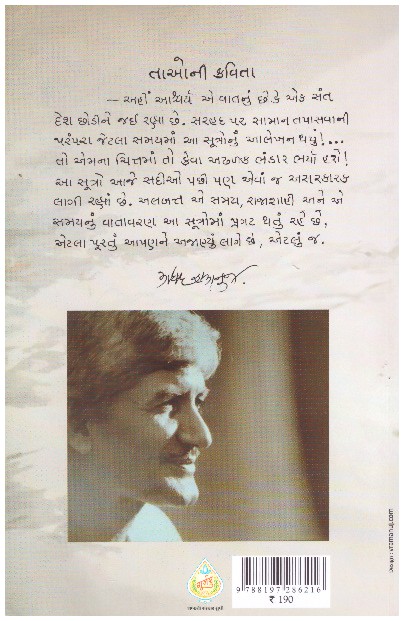 તાઓની કવિતા
— અહીં આશ્ચર્ય એ વાતનું છે કે એક સંત
દેશ છોડીને જઈ રહ્યા છે. સરહદ પર સામાન તપાસવાની
પરંપરા જેટલા સમયમાં આ સૂત્રોનું આલેખન થયું!...
તો એમના ચિત્તમાં તો કેવા અઢળક ભંડાર ભર્યા હશે!
આ સૂત્રો આજે સદીઓ પછી પણ એવાં જ અસરકારક
લાગી રહ્યાં છે. અલબત્ત એ સમય, રાજાશાહી અને એ
સમયનું વાતાવરણ આ સૂત્રોમાં પ્રગટ થતું રહે છે,
એટલા પૂરતું આપણને અજાણ્યું લાગે છે, એટલું જ.
Design: vramanuj.com
9 788197 286216
₹ 190